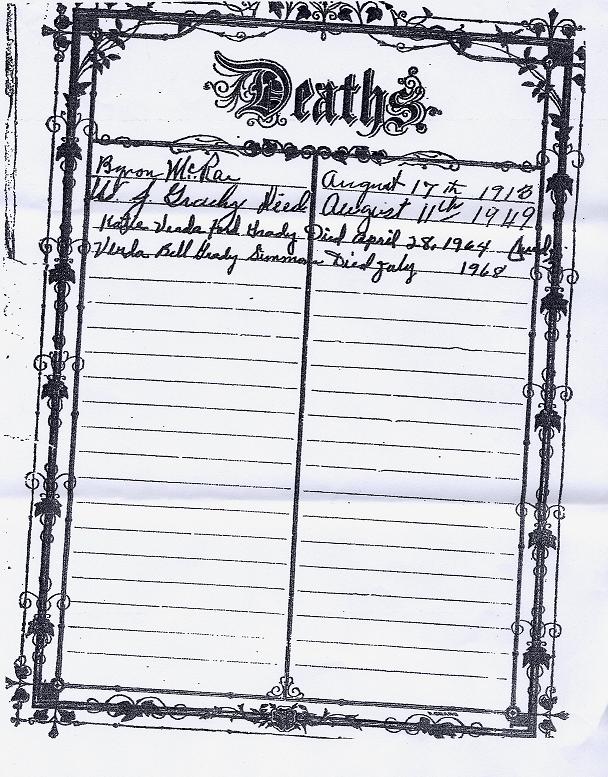 Deaths.
Byron McRae August 17th 1913
W. J. Grady Died August 11th 1949
Katie Verda Ford Grady Died April 28, 1964
Verda Bell Grady Simmons Died July 1968